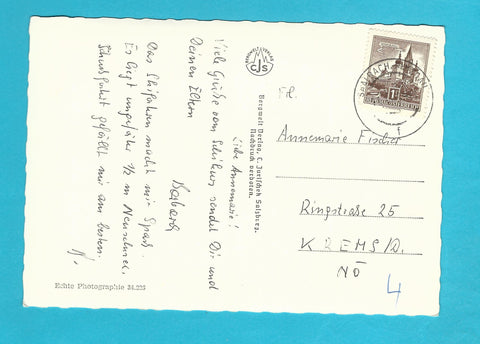 Liebe Annemarie!
Viele Grüße vom Schikurs sendet Dir und
Deinen Eltern
Barbara
Das Skifahren macht mir Spass.
Es liegt ungefähr 1/2 m Neuschnee.
Schussfahrt gefällt mir am besten.
Echte Photographie 34.223
BERGWELT VERLAG
CJS
Bergwelt Verlag, C. Jurischek Salzburg.
Nachdruck verboten.
Frl.
Annemarie Fischer
Ringstraße 25
KREMS/D.
NÖ
4
SAALBACH
REPUBLIK ÖSTERREICH